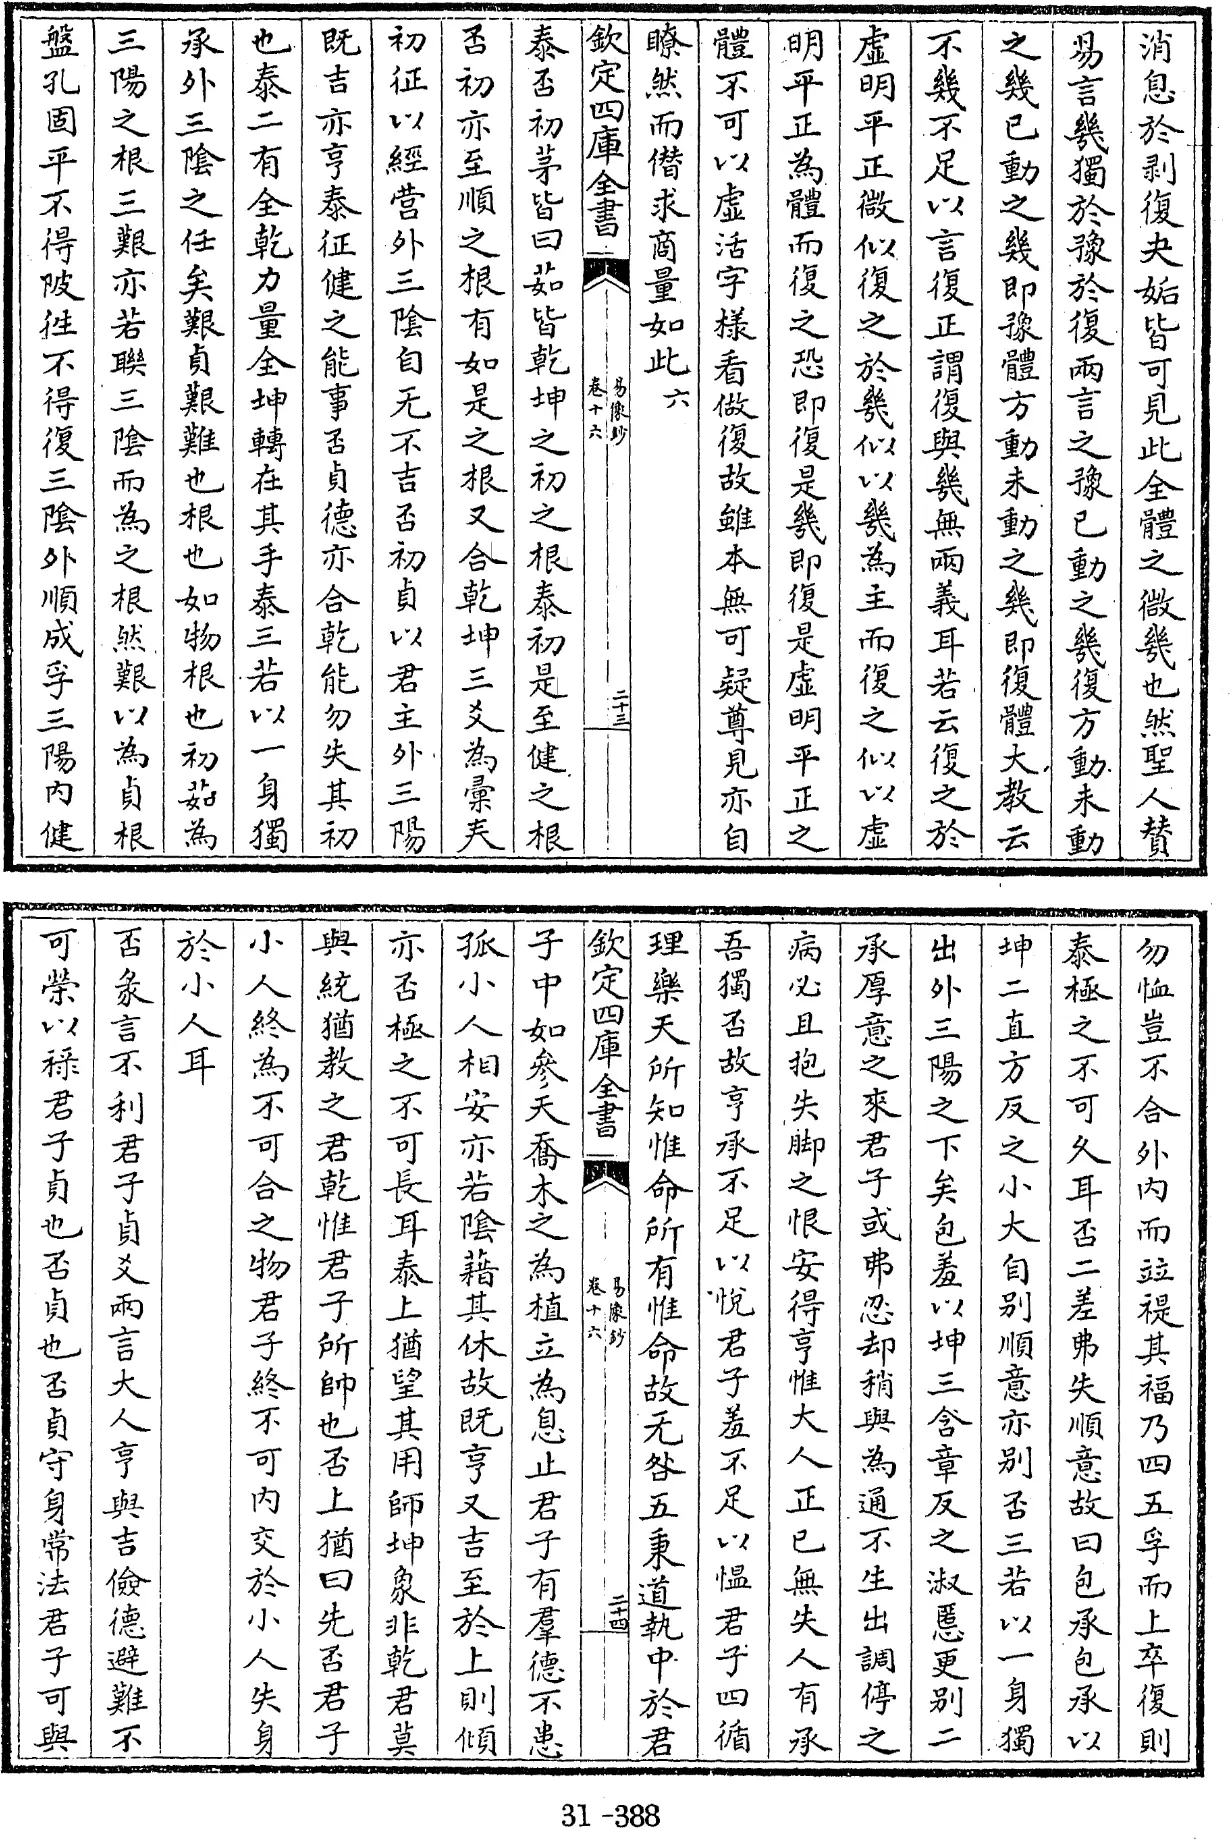 消息於剥復夬姤皆可見此全體之微幾也然聖人賛
易言幾獨於豫於復兩言之豫已動之幾復方動未動
之幾已動之幾即豫體方動未動之幾即復體大教云
不幾不足以言復正謂復與幾無兩義耳若云復之於
虛明平正微似復之於幾似以幾為主而復之似以虛
明平正為體而復之恐即復是幾即復是虛明平正之
體不可以虛活字様看做復故雖本無可疑尊見亦自
瞭然而僭求商量如此 六
欽定四庫全書
易像鈔
卷十六
二十三
泰否初茅皆曰茹皆乾坤之初之根泰初是至健之根
否初亦至順之根有如是之根又合乾坤三爻為彚夫
初征以經营外三隂自无不吉否初貞以君主外三陽
既吉亦亨泰征健之能事否貞德亦合乾能勿失其初
也泰二有全乾力量全坤轉在其手泰三若以一身獨
承外三隂之任矣艱貞艱難也根也如物根也初茹為
三陽之根三艱亦若聯三隂而為之根然艱以為貞根
盤孔固平不得陂徃不得復三隂外順成孚三陽内健
勿恤豈不合外内而竝禔其福乃四五孚而上卒復則
泰極之不可久耳否二差弗失順意故曰包承包承以
坤二直方反之小大自别順意亦别否三若以一身獨
出外三陽之下矣包羞以坤三含章反之淑慝更别二
承厚意之來君子或弗忍却稍與為通不生出調停之
病必且抱失脚之恨安得亨惟大人正已無失人有承
吾獨否故亨承不足以悅君子羞不足以愠君子四循
理樂天所知惟命所有惟命故无咎五秉道執中於君
欽定四庫全書
易像鈔
卷十六
二十四
子中如參天喬木之為植立為息止君子有羣德不患
孤小人相安亦若隂藉其休故既亨又吉至於上則傾
亦否極之不可長耳泰上猶望其用師坤象非乾君莫
與統猶教之君乾惟君子所帥也否上猶曰先否君子
小人終為不可合之物君子終不可内交於小人失身
於小人耳
否彖言不利君子貞爻兩言大人亨與吉儉德避難不
可榮以祿君子貞也否貞也否貞守身常法君子可與
31-388